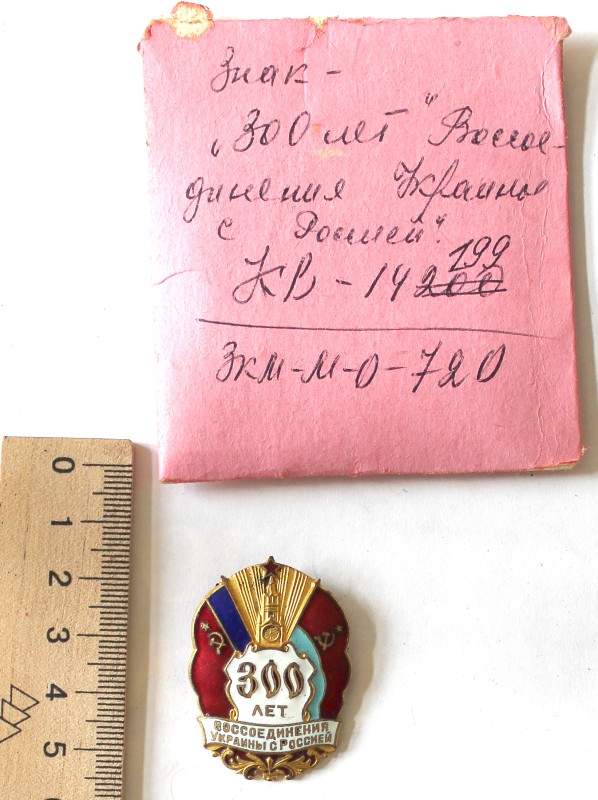 Знак -
„300 лет" Воссое-
динения Украины
с Россией".
199
КВ - 14 200
ЗКМ-М-О-720
0
1
2
3
4
5
300
ЛЕТ
ВОССОЕДИНЕНИЯ
УКРАИНЫ С РОССИЕЙ